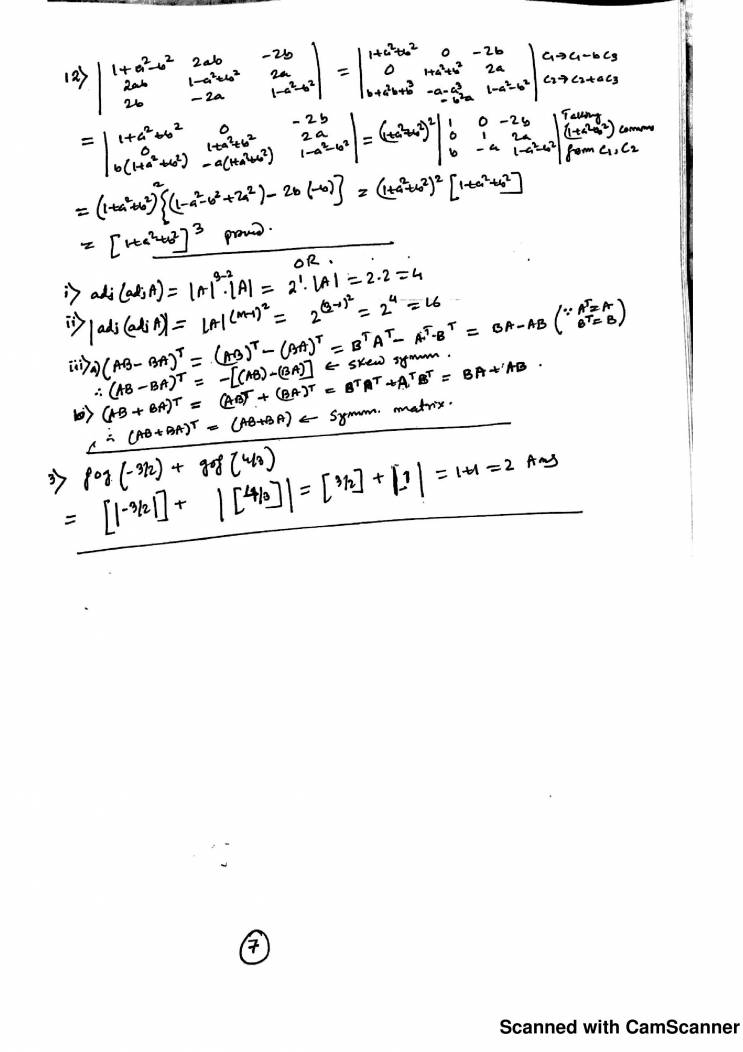 12> | 1+a²-b² 2ab -2b | = | 1+a²+b² 0 -2b | C₁→C₁-bC₃
| 2ab 1-a²+b² 2a | | 0 1+a²+b² 2a | C₂→C₂+aC₃
| 2b -2a 1-a²-b² | | b+a²b+b³ -a-a³-b²a 1-a²-b² |
= | 1+a²+b² 0 -2b | = (1+a²+b²)² | 1 0 -2b | Taking
| 0 1+a²+b² 2a | | 0 1 2a | (1+a²+b²) common
| b(1+a²+b²) -a(1+a²+b²) 1-a²-b² | | b -a 1-a²-b² | from C₁, C₂
= (1+a²+b²)² {(1-a²-b²+2a²) - 2b(-b)} = (1+a²+b²)² [1+a²+b²]
= [1+a²+b²]³ proved.
OR.
i> adj(adjA) = |A|³⁻²·|A| = 2¹·|A| = 2·2 = 4
ii> |adj(adjA)| = |A|^(n-1)² = 2^(3-1)² = 2⁴ = 16
iii>a) (AB - BA)ᵀ = (AB)ᵀ - (BA)ᵀ = BᵀAᵀ - Aᵀ·Bᵀ = BA-AB (∵ Aᵀ=A
Bᵀ=B)
∴ (AB-BA)ᵀ = -[(AB)-(BA)] ← skew symm.
b> (AB + BA)ᵀ = (AB)ᵀ + (BA)ᵀ = BᵀAᵀ + AᵀBᵀ = BA + AB.
∴ (AB+BA)ᵀ = (AB+BA) ← symm. matrix.
3> fog(-3/2) + gof(4/3)
= [|-3/2|] + |[4/3]| = [3/2] + |1| = 1+1 = 2 Ans
7
Scanned with CamScanner